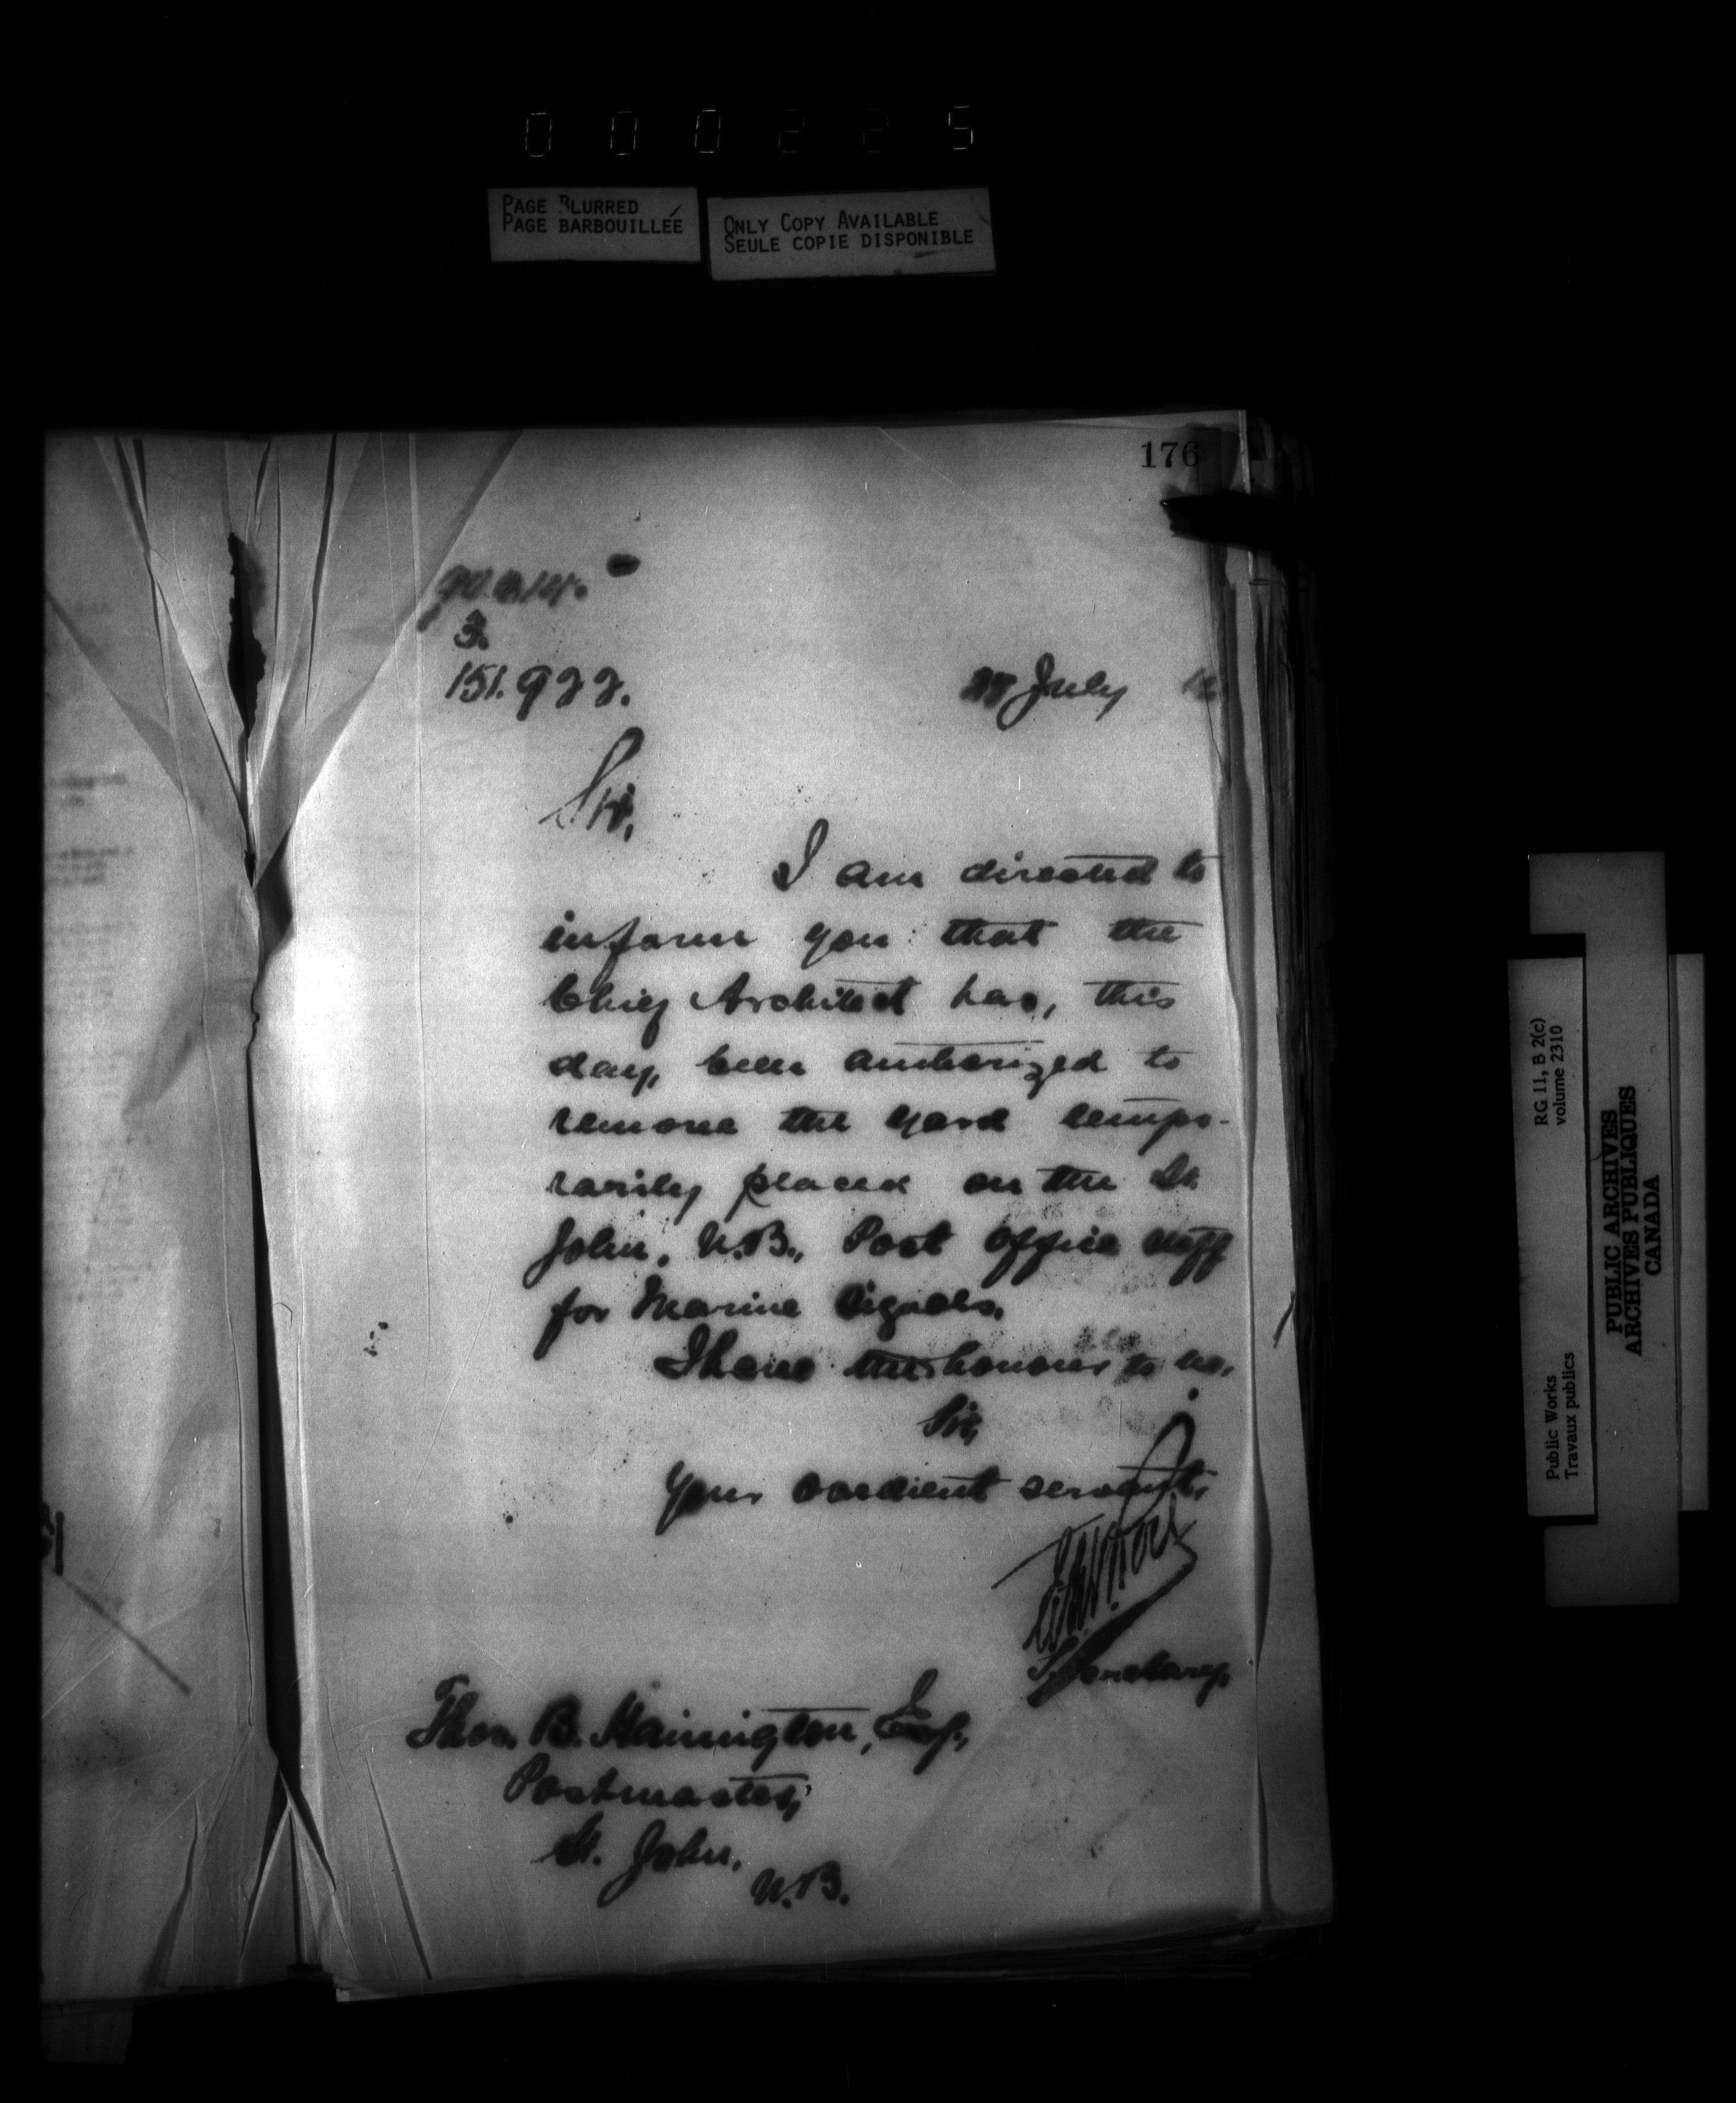 000225
PAGE BLURRED
PAGE BARBOUILLÉE
ONLY COPY AVAILABLE
SEULE COPIE DISPONIBLE
176
3.
151.922.
July
Sir,
I am directed to
inform you that the
Chief Architect has, this
day, been authorized to
remove the yard tempo-
rarily placed on the St.
John, N.B., Post Office
for Marine Signals.
I have the honour to be,
Sir,
Your obedient servant,
Secretary.
Thos. B. Hannington, Esq.,
Postmaster,
St. John,
N.B.
RG 11, B 2(c)
volume 2310
PUBLIC ARCHIVES
ARCHIVES PUBLIQUES
CANADA
Public Works
Travaux publics